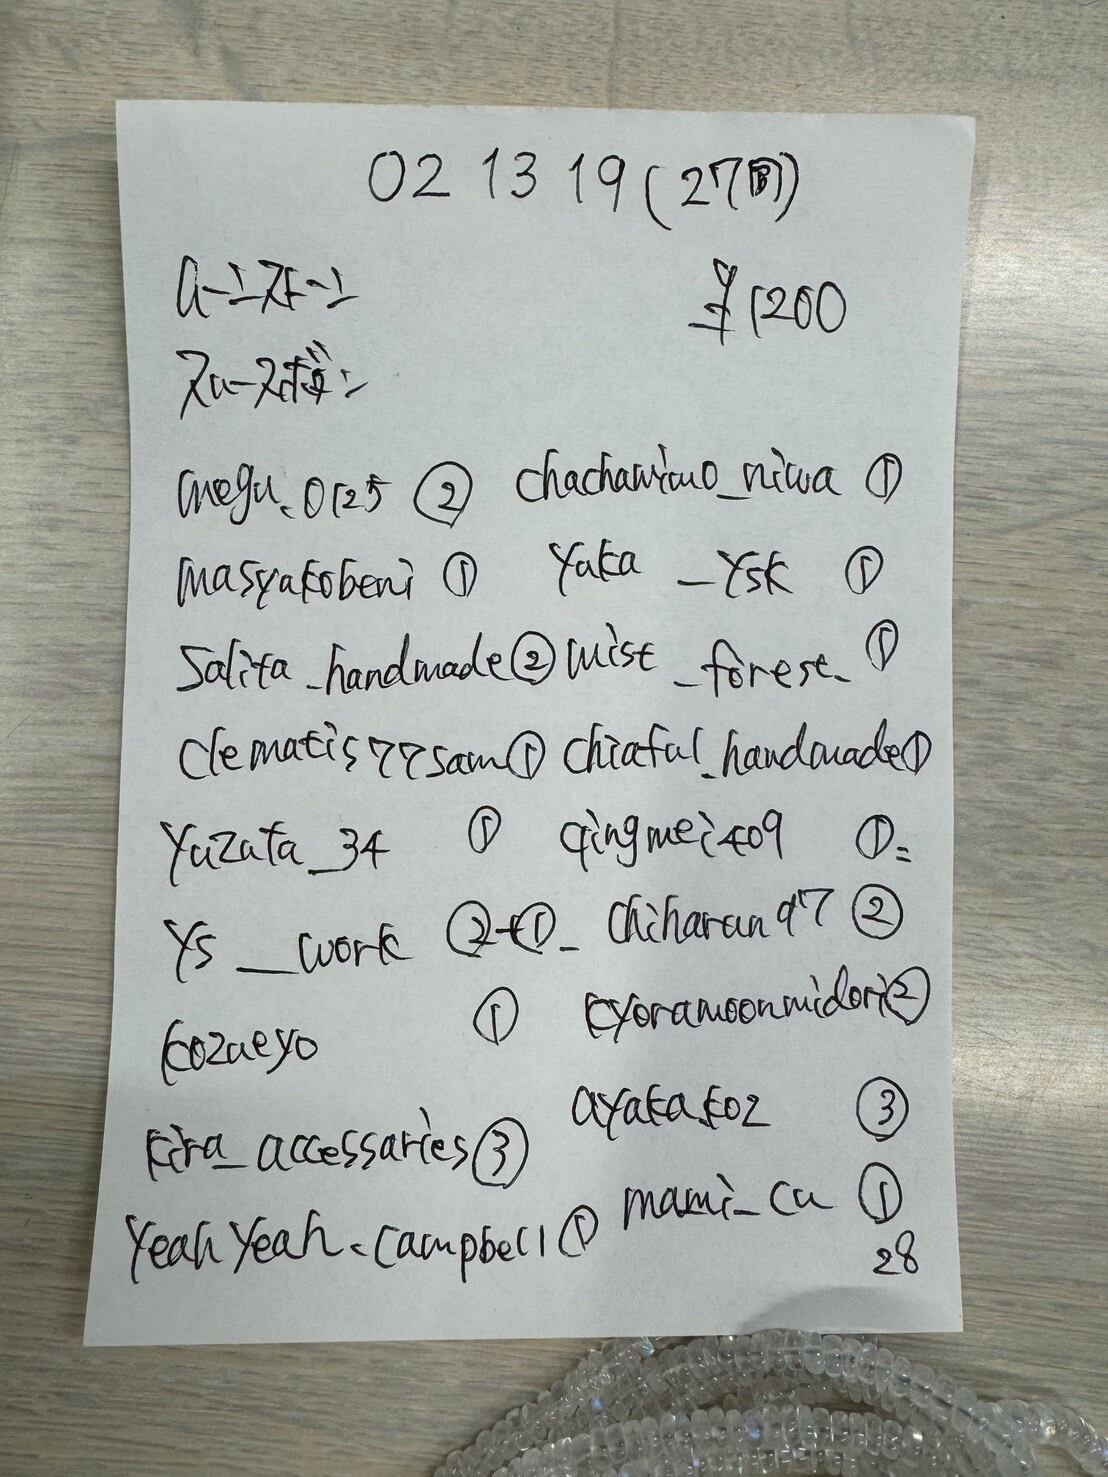 02 13 19 (27円)
ムーンストーン ¥1200
スムースボタン
megu.0125 ② chachawimo_niwa ①
masyakobeni ① yuka _ysk ①
Salita_handmade ② mist _forest_ ①
Clematis77sam ① chiaful_handmade ①
yuzuta_34 ① qingmei409 ①=
ys __work ②+①_ chiharun97 ②
kozueyo ① kyoramoonmidori ②
kira_accessaries ③ ayaka.koz ③
yeahyeah.campbell ① mami_cu ①
28